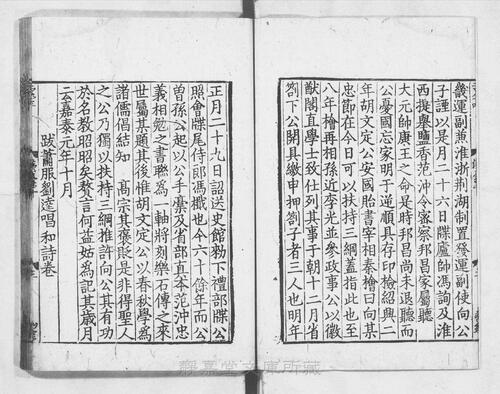 幾運副兼淮浙荆湖制置發運副使向公
子諲以是月二十六日牒廬帥馮詢及淮
西提舉鹽香范沖令密察邦昌家屬聽
大元帥康王之命是時邦昌尚未退聽而
公憂國忘家明于逆順具存印檢紹興二
年胡文定公安國胎書宰相秦檜曰向某
忠節在今日可以扶持三綱蓋指此也至
八年檜再相孫近李光並參政事公以徽
猷閣直學士致仕列其事于朝十二月省
劄下公開具繳申押劄子者三人也明年
正月二十九日詔送史館勑下禮部牒公
照會牒尾侍郎馮檝也今六十餘年而公
曾孫公起以公手藁及省部真本范沖忠
義相勉之書聮為一軸將刻樂石傳之來
世屬某題其後惟胡文定公以春秋學為
諸儒倡結知 高宗其褒貶是非得聖人
之公乃獨以扶持三綱推許向公其有功
於名教昭昭矣贅言何益姑為記其歲月
云嘉泰元年十月
跋蕭服劉逵唱和詩卷
静嘉堂文庫所藏